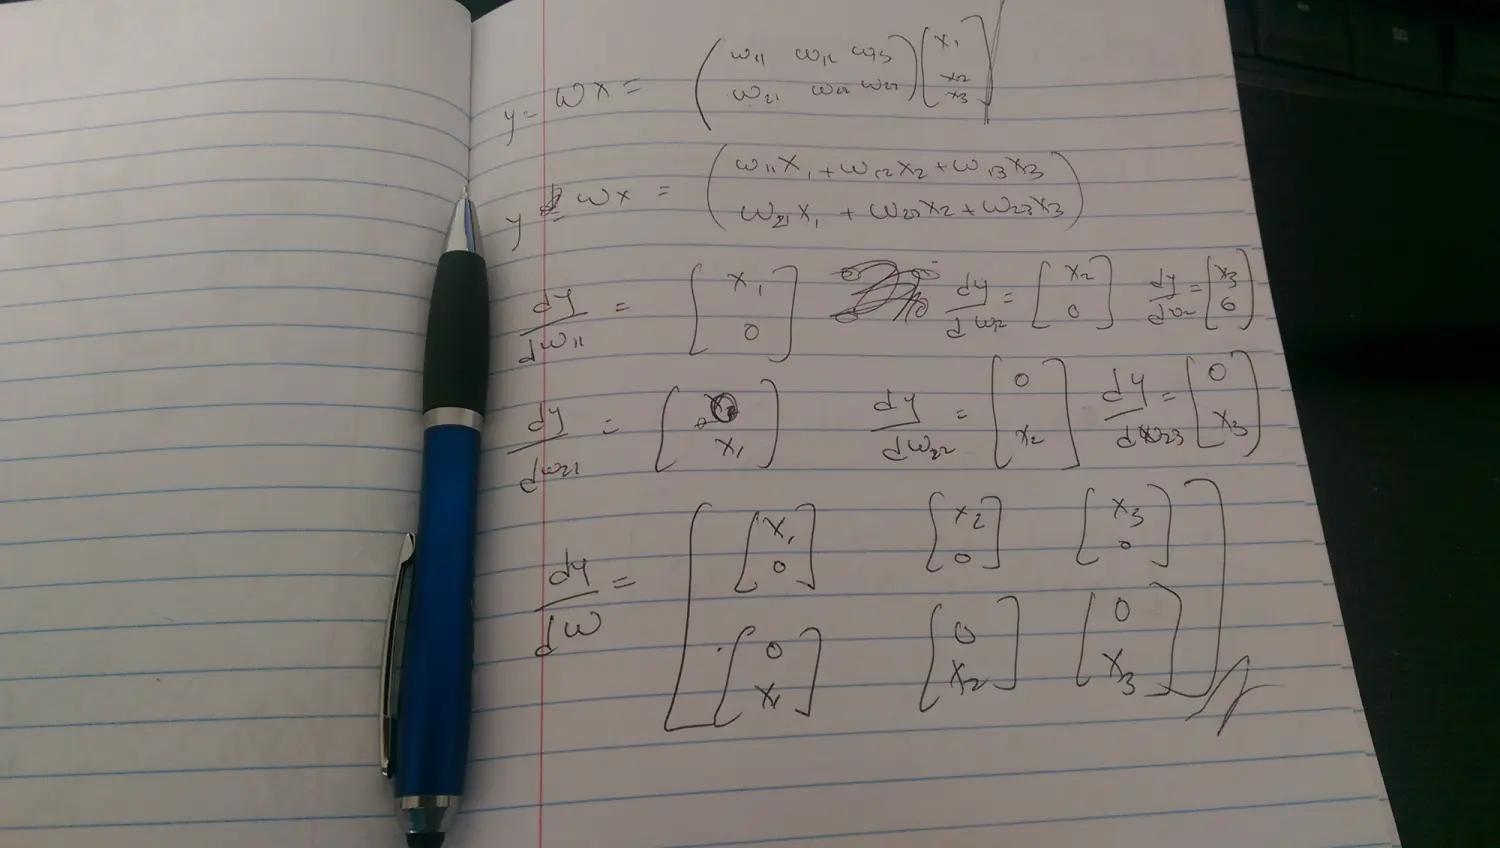 y = ωx = ( ω11 ω12 ω13 ω21 ω22 ω23 ) [ x1 x2 x3 ]
y = ωx = ( ω11x1 + ω12x2 + ω13x3 ω21x1 + ω22x2 + ω23x3 )
dy/dω11 = [ x1 0 ] dy/dω12 = [ x2 0 ] dy/ = [ x3 0 ]
dy/dω21 = [ 0 x1 ] dy/dω22 = [ 0 x2 ] dy/dω23 = [ 0 x3 ]
dy/dω = [ [ x1 0 ] [ x2 0 ] [ x3 0 ]
[ 0 x1 ] [ 0 x2 ] [ 0 x3 ] ]